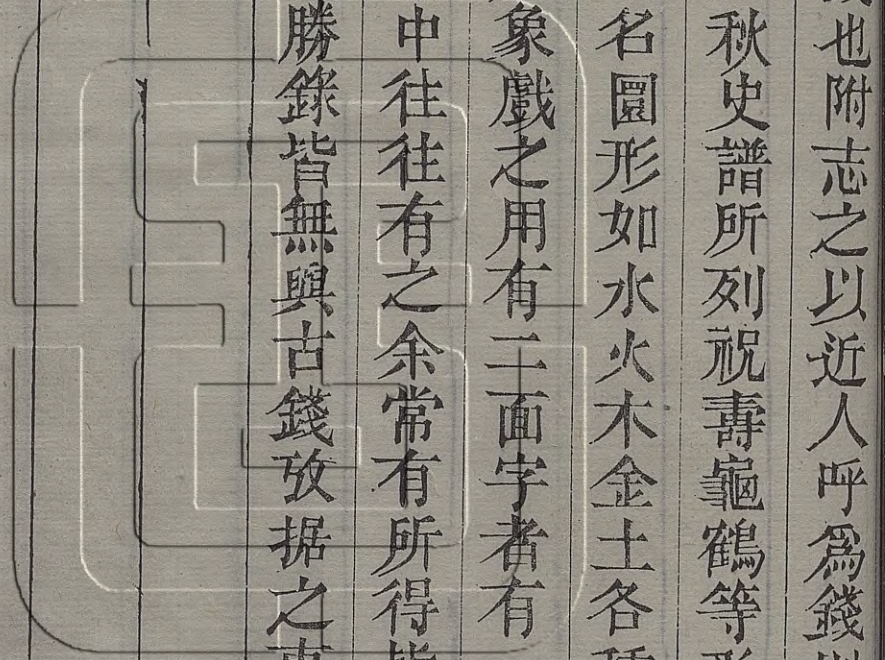 也附志之以近人呼爲錢
秋史譜所列祝壽龜鶴等形
名圜形如水火木金土各種
象戲之用有二面字者有
中往往有之余常有所得皆
勝錄皆無與古錢攷据之